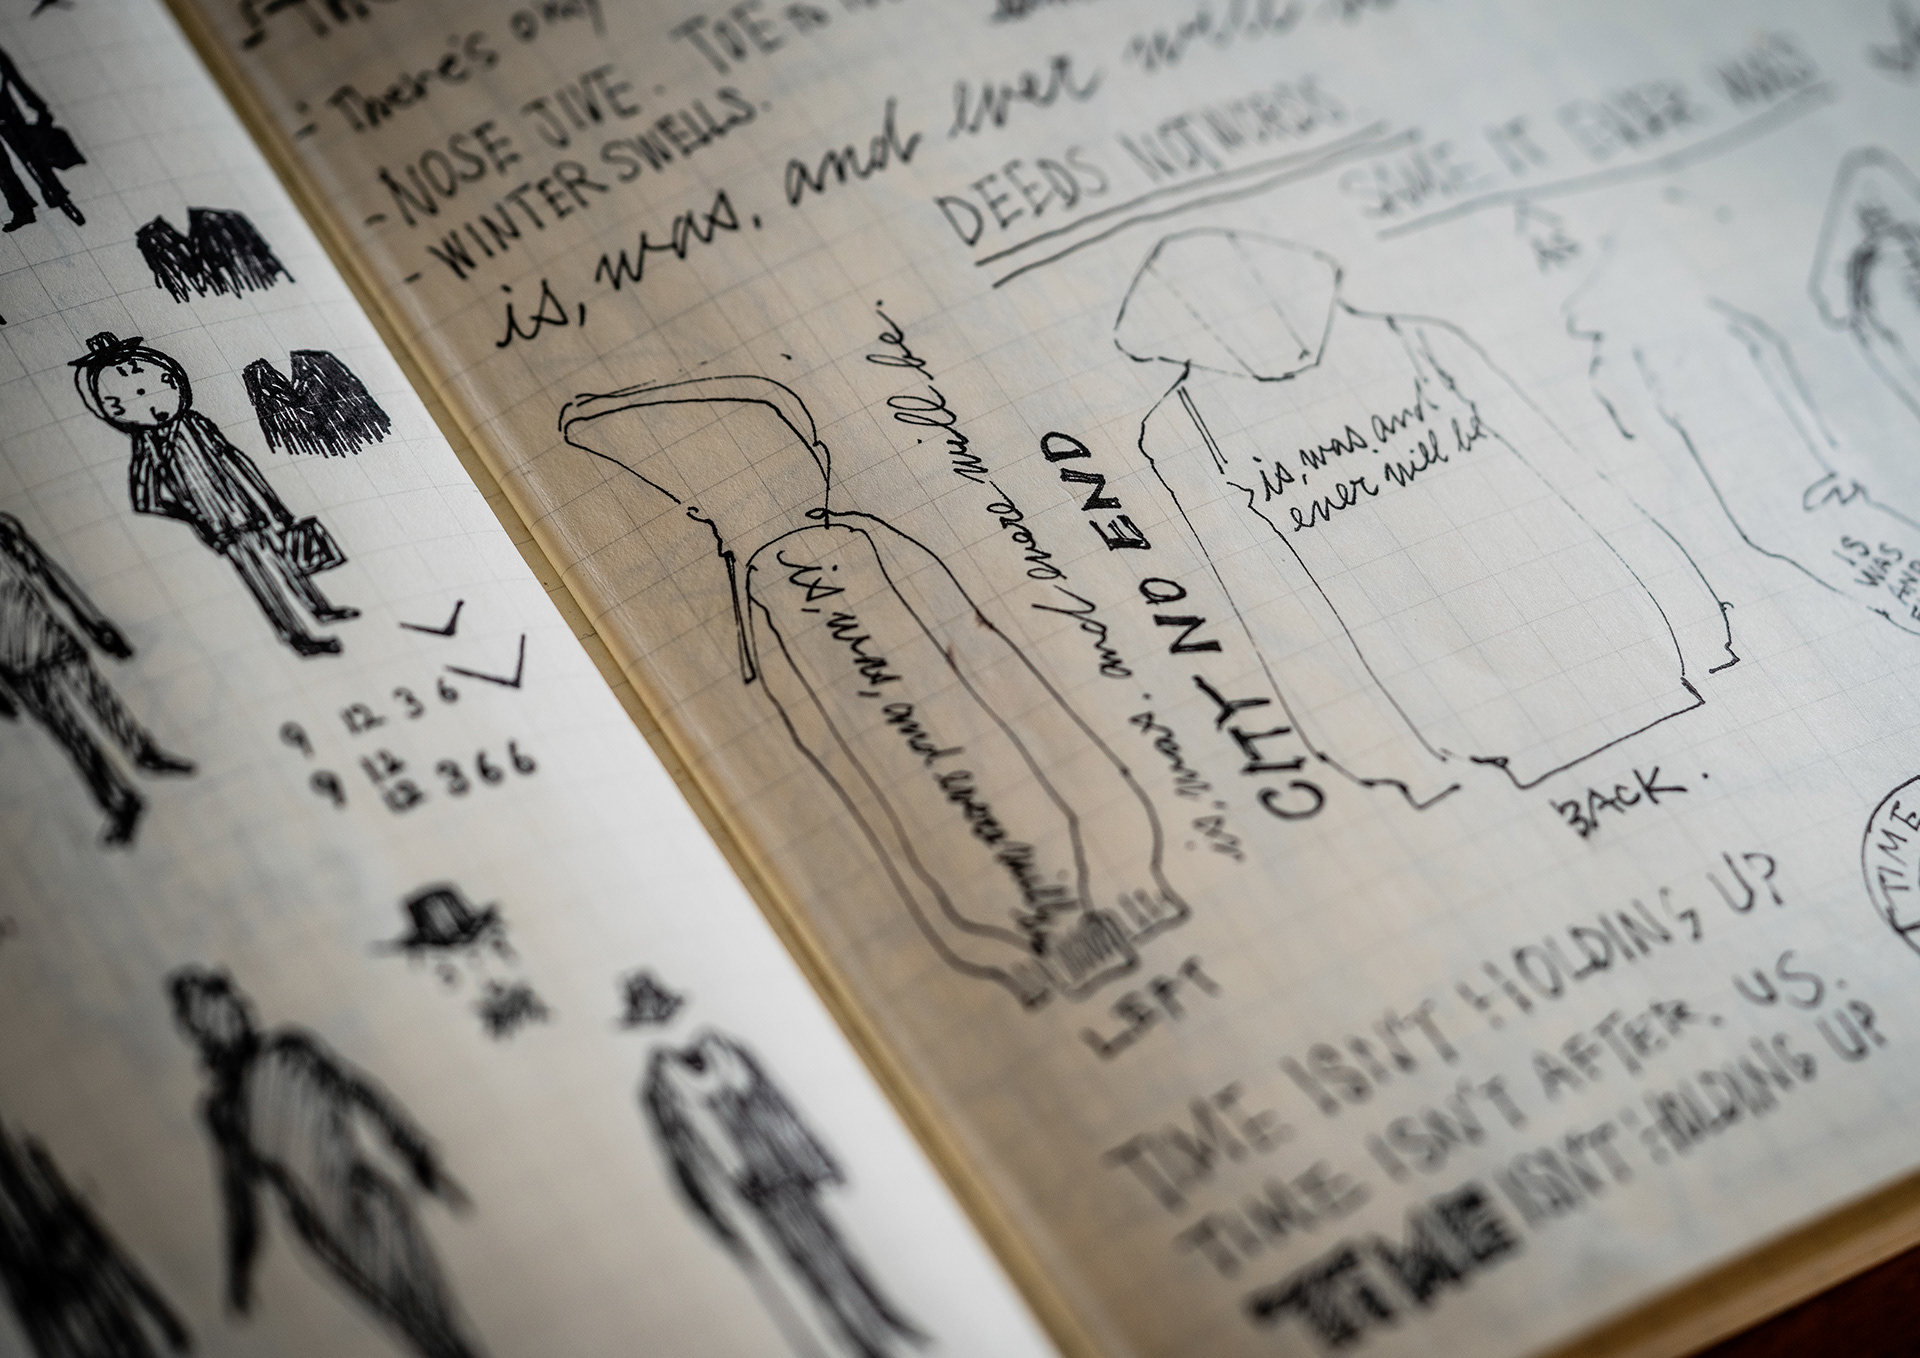 12
9
3
6
9 12 3 6
9 12
12 3 6 6
There's only
- NOSE JIVE.
- WINTER SWELLS.
is, was, and ever will
DEEDS NOT WORDS
SAME IT EVER WAS
AS
is, was, and ever will be.
is, was, and ever will be
CITY NO END
is, was, and
ever will be
IS
WAS
AND
LEFT
BACK.
TIME
TIME ISN'T HOLDING UP
TIME ISN'T AFTER US.
TIME ISN'T HOLDING UP